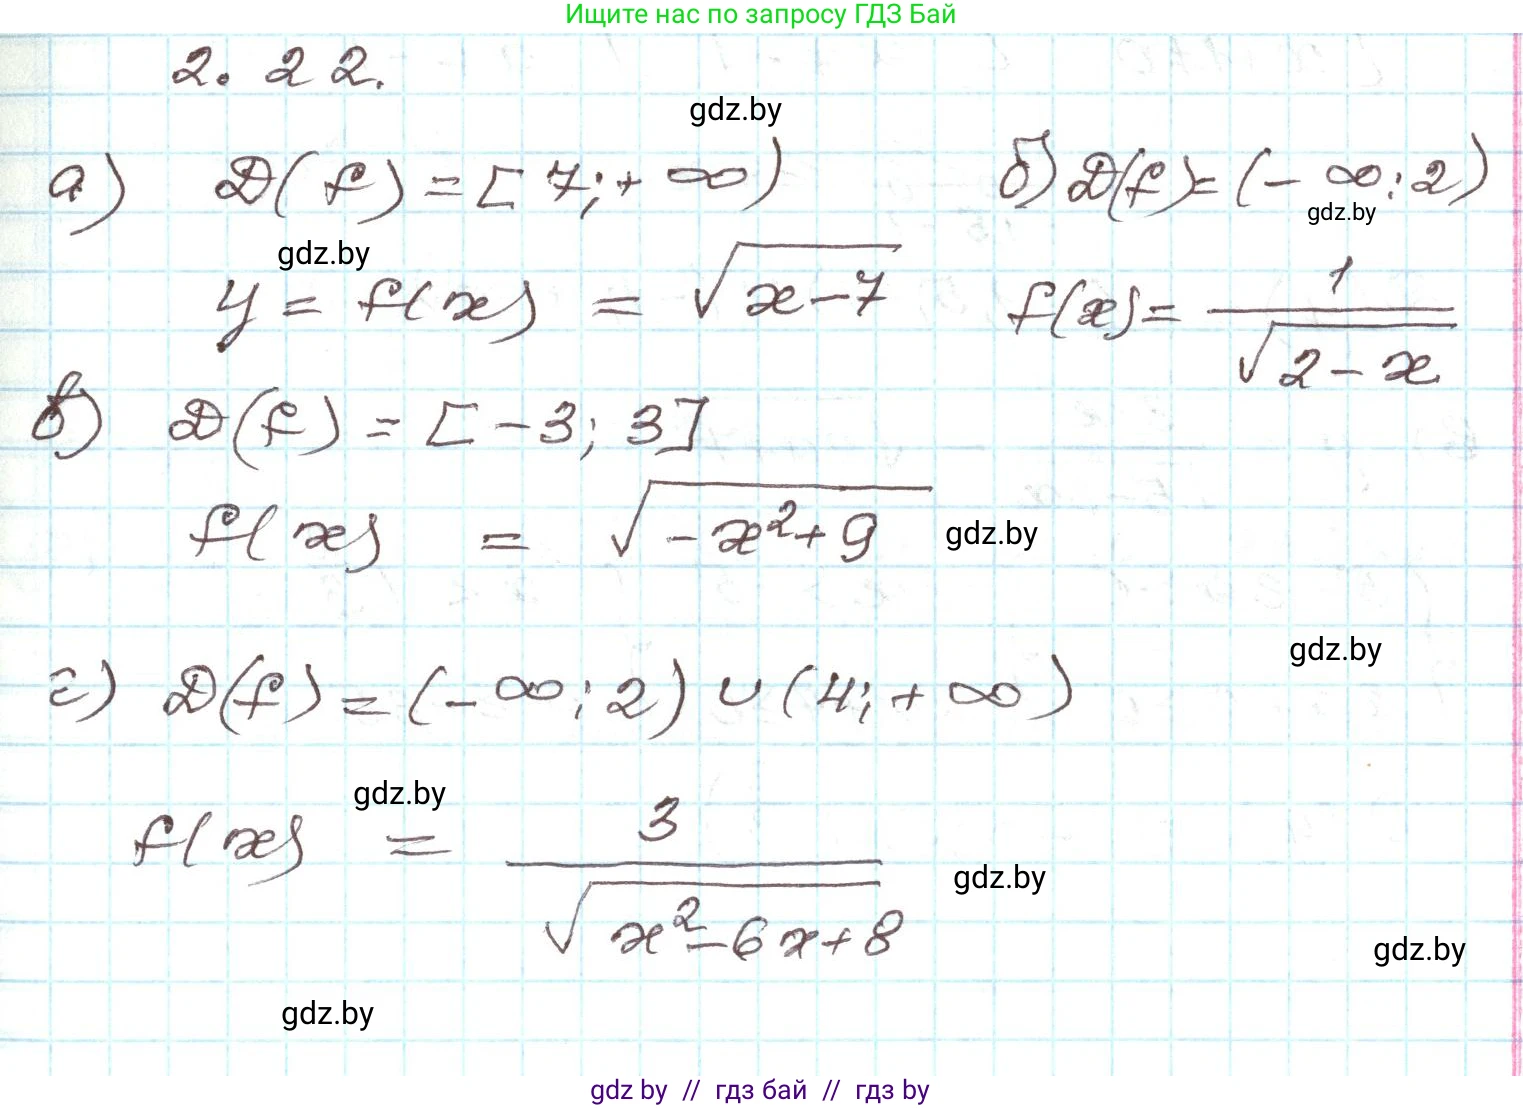 Ищите нас по запросу ГДЗ Бай
2.22.
gdz.by
а) D(f) = [7; +∞)
б) D(f) = (-∞; 2)
gdz.by
gdz.by
y = f(x) = √(x-7)
f(x) = 1/√(2-x)
в) D(f) = [-3; 3]
f(x) = √(-x²+9)
gdz.by
gdz.by
г) D(f) = (-∞; 2) ∪ (4; +∞)
gdz.by
f(x) = 3/√(x²-6x+8)
gdz.by
gdz.by
gdz.by
gdz by // гдз бай // гдз by